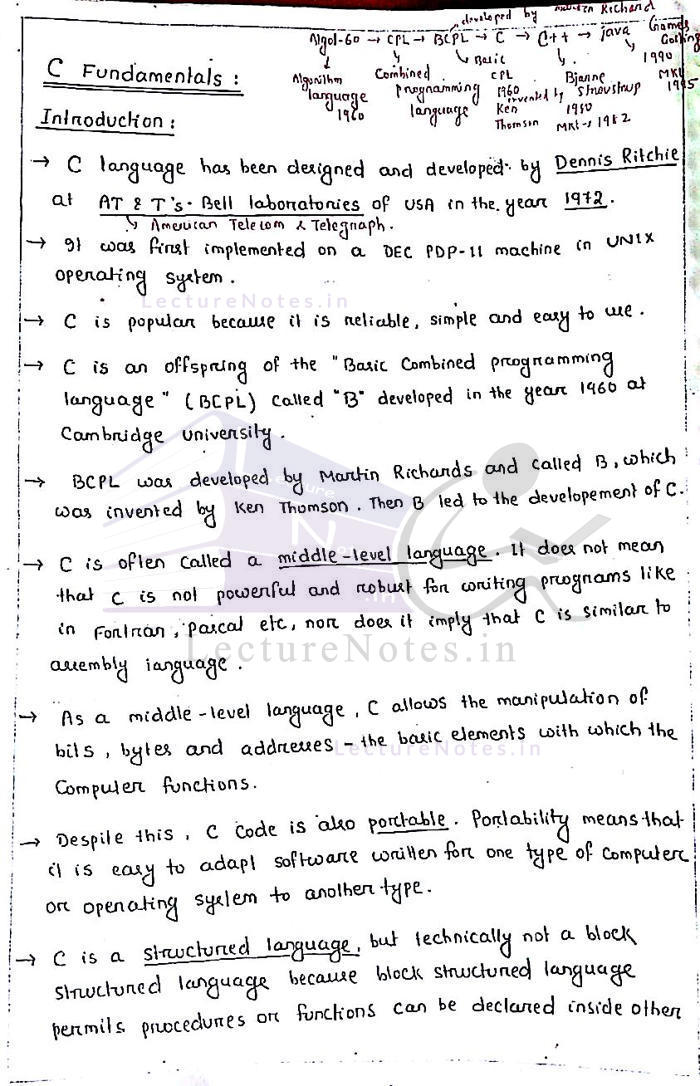 developed by Martin Richard
Algol-60 → CPL → BCPL → C → C++ → java James Gosling
1990
MKt 1995
Algorithm language 1960
Combined programming language
Basic CPL 1960 invented by Ken Thomson
Bjanne Stroustrup 1980
MKt → 1982
C Fundamentals :
Introduction :
→ C language has been designed and developed by Dennis Ritchie
at AT & T's - Bell laboratories of USA in the year 1972.
↳ American Telecom & Telegraph.
→ It was first implemented on a DEC PDP-11 machine in UNIX
operating system.
LectureNotes.in
→ C is popular because it is reliable, simple and easy to use.
→ C is an offspring of the "Basic Combined programming
language" (BCPL) called "B" developed in the year 1960 at
Cambridge university.
→ BCPL was developed by Martin Richards and called B, which
was invented by Ken Thomson. Then B led to the developement of C.
→ C is often called a middle-level language. It does not mean
that C is not powerful and robust for writing programs like
in Fortran, pascal etc, nor does it imply that C is similar to
assembly language.
LectureNotes.in
→ As a middle-level language, C allows the manipulation of
bits, bytes and addresses - the basic elements with which the
LectureNotes.in
Computer functions.
→ Despite this, C code is also portable. Portability means that
it is easy to adapt software written for one type of computer
or operating system to another type.
→ C is a structured language, but technically not a block
structured language because block structured language
permits procedures or functions can be declared inside other